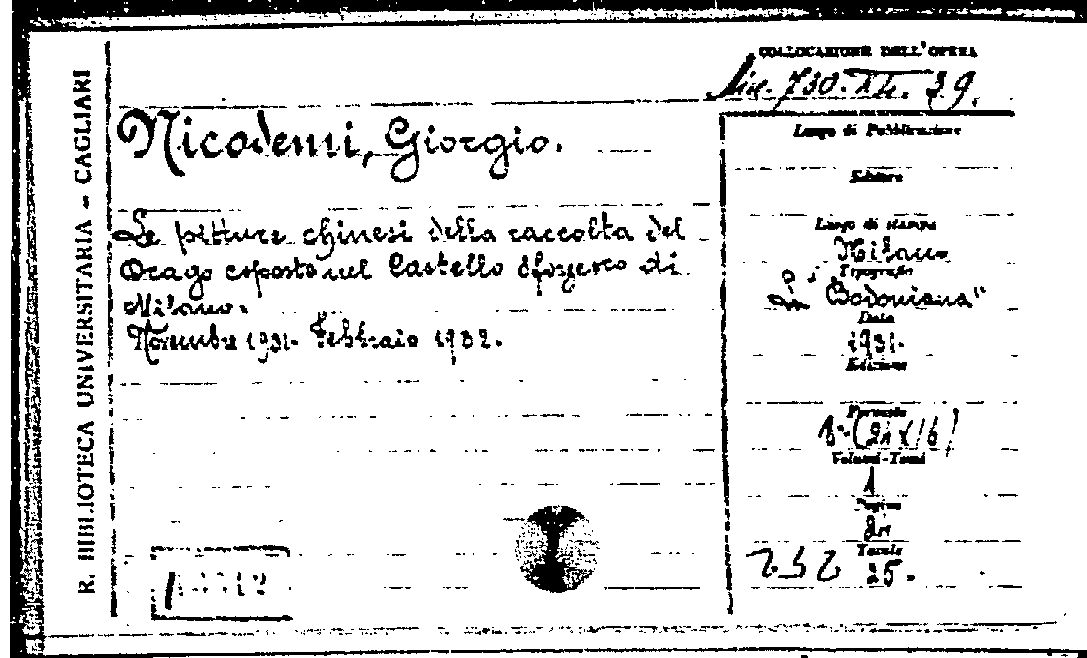 R. BIBLIOTECA UNIVERSITARIA - CAGLIARI
COLLOCAZIONE DELL'OPERA
Nicodemi, Giorgio.
Le pitture chinesi della raccolta del
Drago esposte nel Castello Sforzesco di
Milano.
Novembre 1931- Febbraio 1932.
Luogo di Pubblicazione
Editore
Luogo di stampa
Milano
Tipografia
"Bodoniana"
Data
1931.
Edizione
Formato
Volumi-Tomi
1
Pagine
Tavole
25.
252